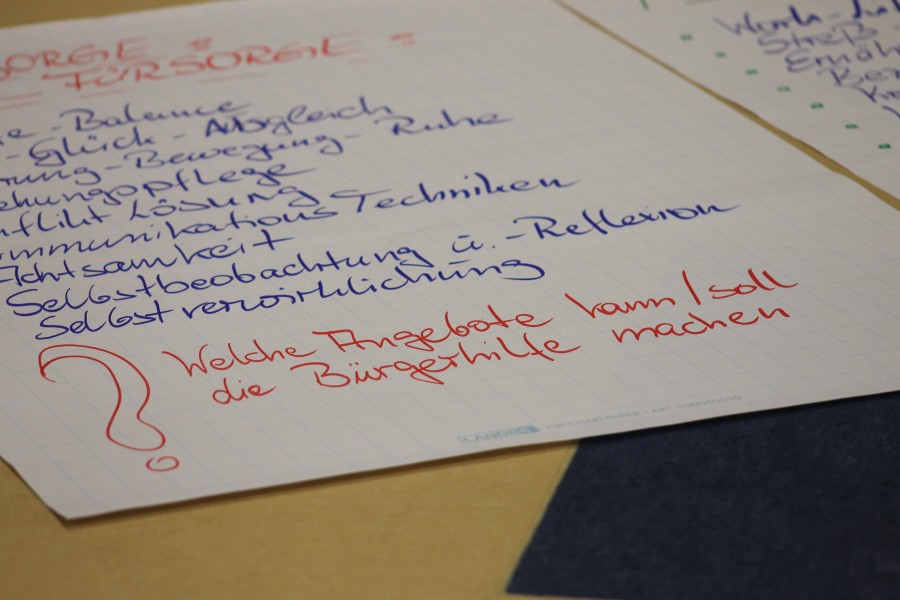 SORGE =
FÜRSORGE =
-Balance
-Glück-Abgleich
-Bewegung-Ruhe
pflege
Lösung
mmunikations Techniken
Achtsamkeit
Selbstbeobachtung u. -Reflexion
Selbstverwirklichung
? Welche Angebote kann/soll
die Bürgerhilfe machen
LANDRÉ
Work-
Streß
Ernäh
Be